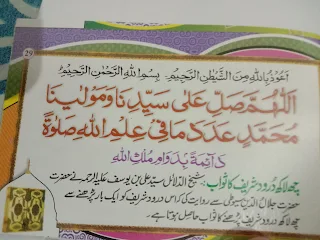 29
اَعُوْذُ بِاللّٰهِ مِنَ الشَّيْطٰنِ الرَّجِيْمِ بِسْمِ اللهِ الرَّحْمٰنِ الرَّحِيْمِ
اَللّٰهُمَّ صَلِّ عَلٰى سَيِّدِنَا وَمَوْلٰينَا
مُحَمَّدٍ عَدَدَ مَا فِيْ عِلْمِ اللهِ صَلٰوةً
دَآئِمَةً بِدَوَامِ مُلْكِ اللهِ
چھ لاکھ درود شریف کا ثواب: شیخ الدلائل سید علی بن یوسف علیہ الرحمہ نے حضرت
حضرت جلال الدین سیوطی سے روایت کی کہ اس درود شریف کو ایک بار پڑھنے سے
چھ لاکھ درود شریف پڑھنے کا ثواب حاصل ہوتا ہے۔